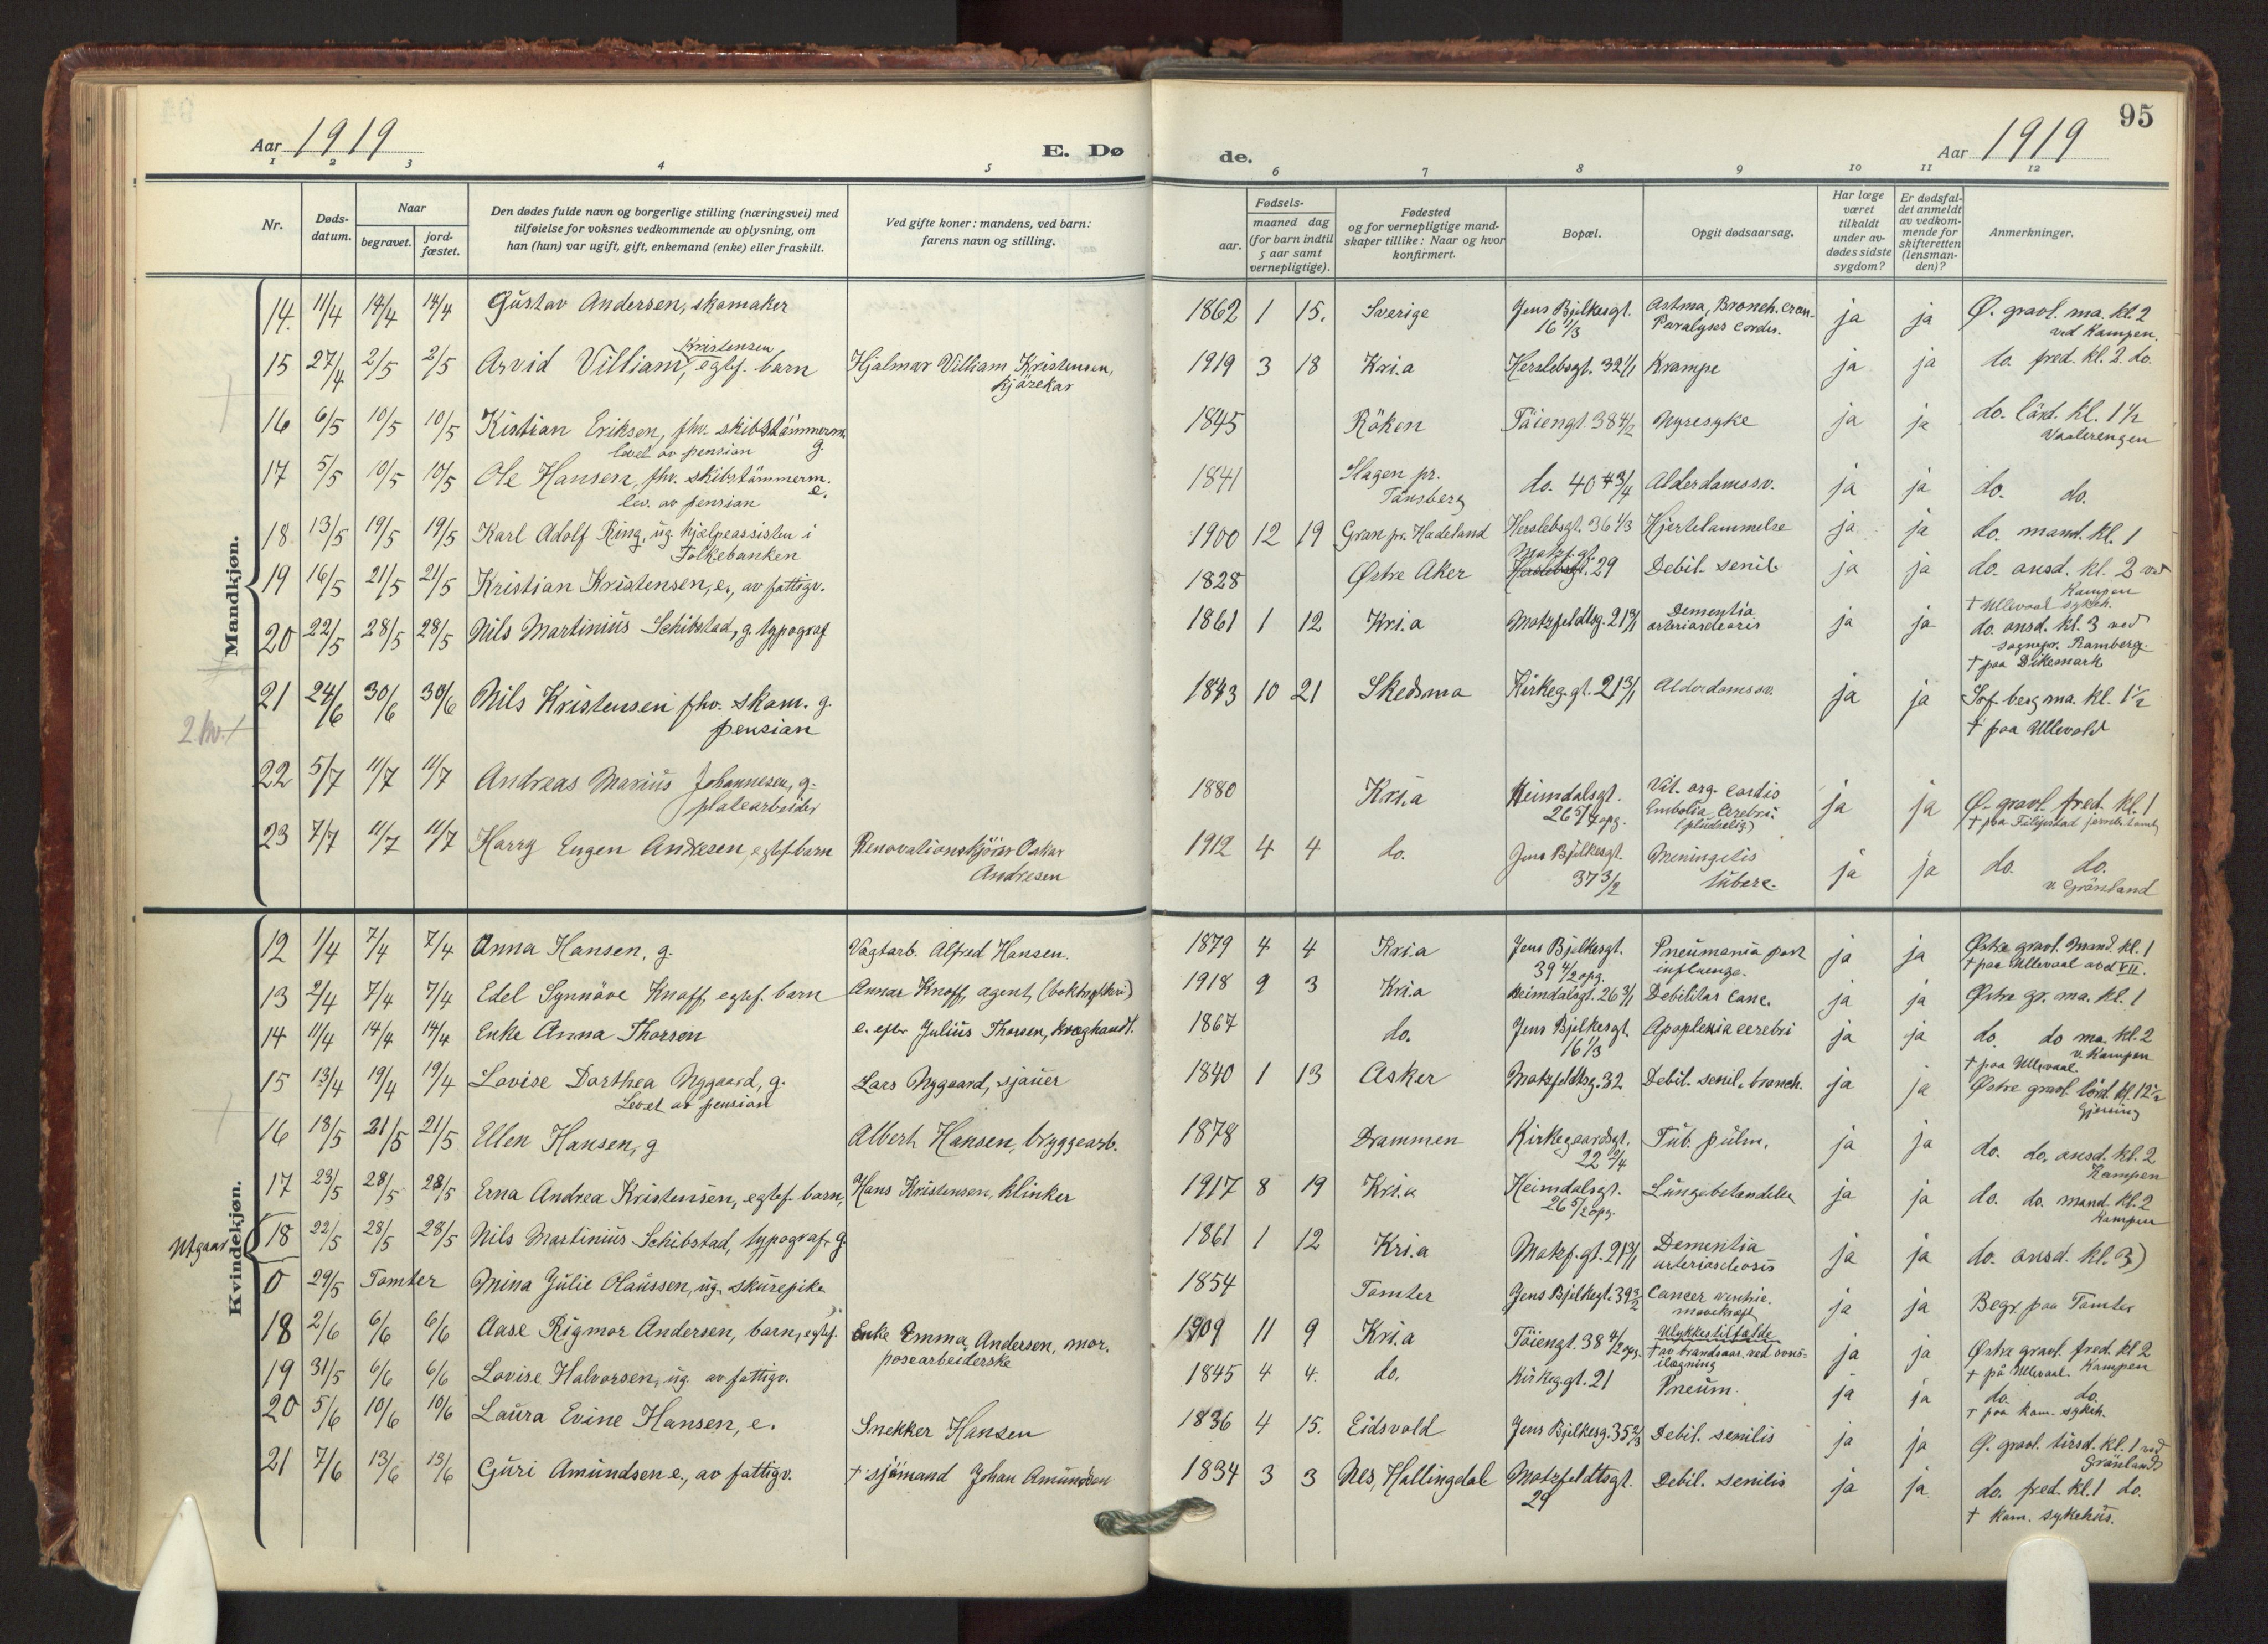 95
Aar 1919
E. Dø
de.
Aar 1919
1 2 3 4 5 6 7 8 9 10 11 12
Nr.
Døds-
datum.
Naar
begravet.
jord-
fæstet.
Den dødes fulde navn og borgerlige stilling (næringsvei) med
tilføielse for voksnes vedkommende av oplysning, om
han (hun) var ugift, gift, enkemand (enke) eller fraskilt.
Ved gifte koner: mandens, ved barn:
farens navn og stilling.
Fødsels-
aar.
maaned dag
(for barn indtil
5 aar samt
vernepligtige).
Fødested
og for vernepligtige mand-
skaper tillike: Naar og hvor
konfirmert.
Bopæl.
Opgit dødsaarsag.
Har læge
været
tilkaldt
under av-
dødes sidste
sygdom?
Er dødsfal-
det anmeldt
av vedkom-
mende for
skifteretten
(lensman-
den)?
Anmerkninger.
Mandkjøn.
14. 11/4 14/4 14/4 Gustav Andersen, skomaker 1862 1 15. Sverige Jens Bjelkesgt. Astma, Bronch. cron. ja ja Ø. gravl. ma. kl. 2
16 1/3 Paralyses cordis. ved Kampen.
Kristensen
15 27/4 2/5 2/5 Arvid Villiam, egtef. barn Hjalmar Villiam Kristensen, 1919 3 18 Kri.a Herslebsgt. 32 1/1 Krampe ja ja do. fred. kl. 2. do.
kjörekar
16 6/5 10/5 10/5 Kistian Eriksen, fhv. skibstömmerm. 1845 Röken Töiengt. 38 4/2 Nyresyke ja ja do. lörd. kl. 1 1/2
levet av pension g. Vaalerengen
17 5/5 10/5 10/5 Ole Hansen, fhv. skibstömmerm. 1841 Slagen pr. do. 40 43/4 Alderdomssv. ja ja do. do.
lev. av pension e. Tönsberg
18 13/5 19/5 19/5 Karl Adolf Ring, ug. hjelpeassisten i 1900 12 19 Gran pr. Hadeland Herslebsgt. 36 1/3 Hjertelammelse ja ja do. mand. kl. 1
Folkebanken
Motzf. gt.
19 16/5 21/5 21/5 Kristian Kristensen, e., av fattigv. 1828 Østre Aker Herslebsgt. 29 Debil. senil ja ja do. onsd. kl. 2 ved
Kampen
† Ullevaal sykeh.
20 22/5 28/5 28/5 Nils Martinius Schibstad, g. typograf 1861 1 12 Kri.a Motzfeldtsg. 21 3/1 Dementia ja ja do. onsd. kl. 3 ved
sognepr. Ramberg.
† paa Dikemark
21 24/6 30/6 30/6 Nils Kristensen fhv. skom. g. 1843 10 21 Skedsmo Kirkeg.gt. 21 3/1 Alderdomssv. ja ja Sof. berg ma. kl. 1 1/2
pension † paa Ullevold
2 kv. +
22 5/7 11/7 11/7 Andreas Marius Johannesen, g. 1880 Kri.a Heimdalsgt. Vit. org. cordis ja ja Ø. gravl. fred. kl. 1
platearbeider 26 5/4 opg. Embolia cerebri
(pludselig)
23 7/7 11/7 11/7 Harry Eugen Andresen, egtef. barn Renovationskjörer Oskar 1912 4 4 do. Jens Bjelkesgt. Meningitis ja ja do. do.
Andresen 37 3/2 tuberc. v. Grönland
Kvindekjøn.
12 1/4 7/4 7/4 Anna Hansen, g. Vegtarb. Alfred Hansen. 1879 4 4 Kri.a Jens Bjelkesgt. Pneumonia post ja ja Østre gravl. Mand. kl. 1
39 4/2 opg. influenza. † paa Ullevaal avd VII.
13 2/4 7/4 7/4 Edel Synnöve Knoff, egtef. barn Annar Knoff, agent, (boktrykkeri) 1918 9 3 Kri.a Heimdalsgt. 26 3/1 Debilitas cone. ja ja Østre gr. ma. kl. 1
14 11/4 14/4 14/4 Enke Anna Thorsen e. efter Julius Thorsen, kvæghandl. 1867 do. Jens Bjelkesgt. Apoplexia cerebri ja ja do. do ma. kl. 2
16 1/3 v. Kampen
† paa Ullevaal.
15 13/4 19/4 19/4 Lovise Dorthea Nygaard, g. Lars Nygaard, sjauer 1840 1 13 Asker Motzfeldtsg. 32 Debil. senil. bronch. ja ja Østre gravl. lörd. kl. 12 1/2
Levet av pension
16 18/5 21/5 21/5 Ellen Hansen, g Albert Hansen, bryggearb. 1878 Drammen Kirkegaardsgt. Tub. pulm. ja ja do. do. onsd. kl. 2
22 2/4 Kampen
17 23/5 28/5 28/5 Erna Andrea Kristensen, egtef. barn, Hans Kristensen, klinker 1917 8 19 Kri.a Heimdalsgt. Lungebetændelse ja ja do. do. mand. kl. 2
26 5/2 opg. Kampen
Utgaar
18 22/5 28/5 28/5 Nils Martinius Schibstad, typograf g. 1861 1 12 Kri.a Motzf. gt. 21 3/1 Dementia ja ja do. onsd. kl. 3)
0 29/5 Tomter Mina Julie Olaussen, ug. skurepike 1854 Tomter Jens Bjelkegt. 39 3/2 Cancer ventric. ja ja Begr. paa Tomter
mavekræft
18 2/6 6/6 6/6 Aase Rigmor Andersen, barn, egtef. Enke Emma Andersen, mor. 1909 11 9 Kri.a Töiengt. 38 4/2 opg. Ulykkestilfælde ja ja Østre gravl. fred. kl 2
posearbeiderske † av brandsaar ved ovns-
ilægning † på Ullevaal. Kampen
19 31/5 6/6 6/6 Lovise Halvorsen, ug. av fattigv. 1845 4 4. do. Kirkeg.gt. 21 Pneum. ja ja do. do.
† paa kom. sykeh.
20 5/6 10/6 10/6 Laura Evine Hansen, e. Snekker Hansen 1836 4 15. Eidsvold Jens Bjelkesg. 35 2/3 Debil. senilis ja ja Ø. gravl. tirsd. kl. 1 ved
Grönland
21 7/6 13/6 13/6 Guri Amundsen e., av fattigv. † sjömand Johan Amundsen 1834 3 3 Nes, Hallingdal Motzfeldtsgt. Debil. senilis ja ja do. fred. kl. 1 do.
29 † Kom. sykehus.